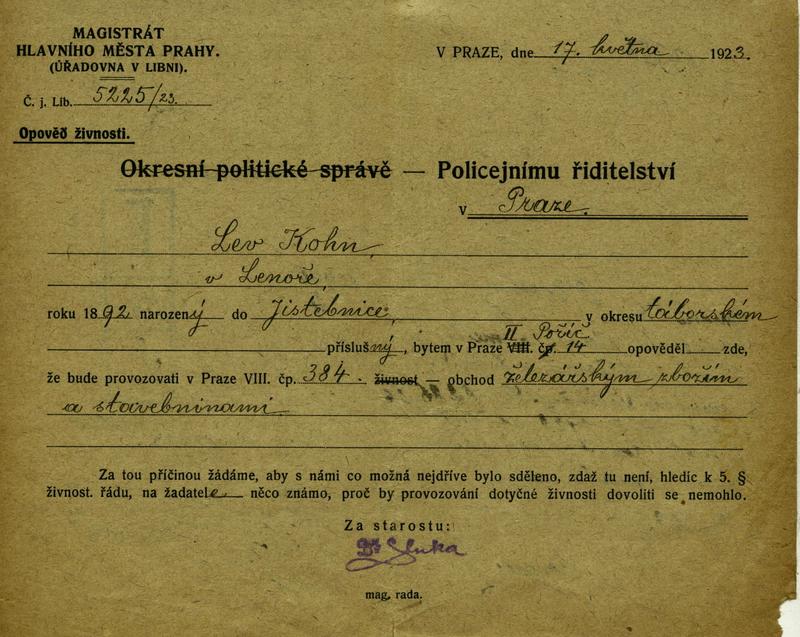 MAGISTRÁT
HLAVNÍHO MĚSTA PRAHY.
(ÚŘADOVNA V LIBNI).
V PRAZE, dne 17. května 1923.
Č. j. Lib. 5225/23.
Opověď živnosti.
Okresní politické správě — Policejnímu řiditelství
v Praze.
Lev Kohn,
v Lenoře,
roku 1892 narozený do Jistebnice, v okresu táborském
II Poříč
příslušný, bytem v Praze VIII. čp. 14 opověděl zde,
že bude provozovati v Praze VIII. čp. 384. živnost — obchod železářským zbožím
a stavebninami
Za tou příčinou žádáme, aby s námi co možná nejdříve bylo sděleno, zdaž tu není, hledíc k 5. §
živnost. řádu, na žadatele něco známo, proč by provozování dotyčné živnosti dovoliti se nemohlo.
Za starostu:
Dr Sluka
mag. rada.